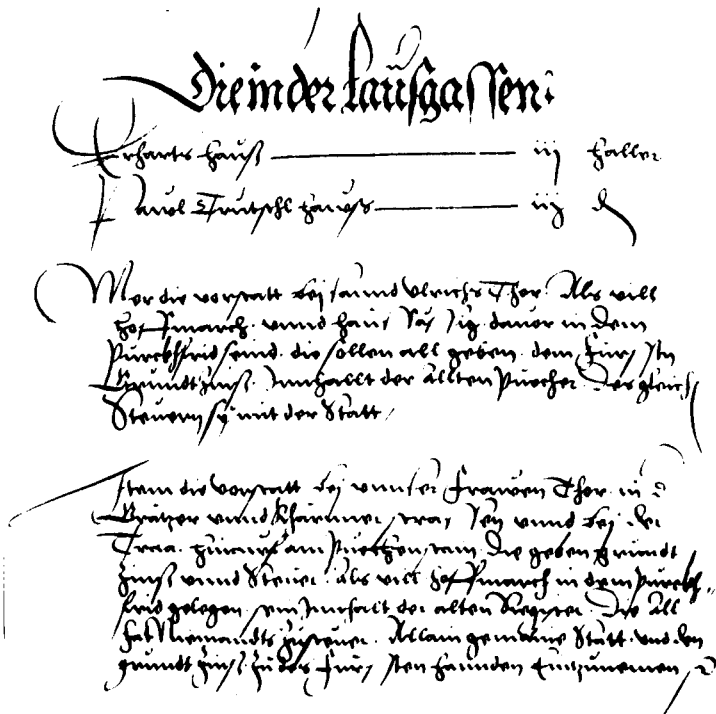 Die in der Lausgassen:
Erharts hauß — iij haller
Paul Trutschl hauß — iij d
Mer die vorstatt bej sannd Ulrichs Thor. Als vill
hofmarch. vnnd hausassig. dauor in dem
Purckhfrid seind. die sollen all geben. dem Fursstn
Grundtzinß. Innhallt der allten Puecher. Dergleich
Steuern sy mit der Statt
Item die vorstatt bej vnnser Frawen Thor. in
Grätzer vnnd Kharnner strassen vnnd bej der
Traa. am die geben grundt
zinß vnnd Steuer. als vill hofmarch in dem Purckh-
frid gelegen. sein Innhalt der alten Register. Die all
hat Niemandts zusteuer. Allain gemaine Statt. vnd den
grundtzinß zu des Furssten hannden Einzunemen